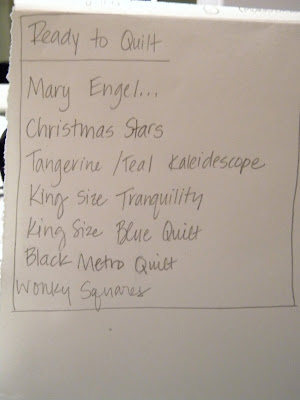 Ready to Quilt
Mary Engel...
Christmas Stars
Tangerine/Teal Kaleidescope
King Size Tranquility
King Size Blue Quilt
Black Metro Quilt
Wonky Squares